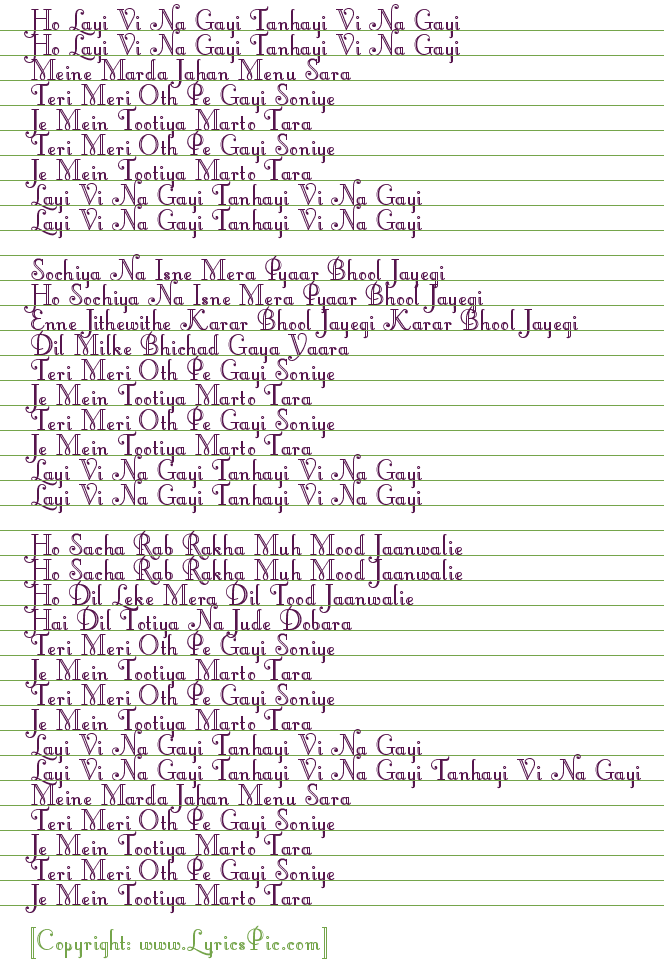 Ho Layi Vi Na Gayi Tanhayi Vi Na Gayi
Ho Layi Vi Na Gayi Tanhayi Vi Na Gayi
Meine Marda Jahan Menu Sara
Teri Meri Oth Pe Gayi Soniye
Je Mein Tootiya Marto Tara
Teri Meri Oth Pe Gayi Soniye
Je Mein Tootiya Marto Tara
Layi Vi Na Gayi Tanhayi Vi Na Gayi
Layi Vi Na Gayi Tanhayi Vi Na Gayi

Sochiya Na Isne Mera Pyaar Bhool Jayegi
Ho Sochiya Na Isne Mera Pyaar Bhool Jayegi
Enne Jithewithe Karar Bhool Jayegi Karar Bhool Jayegi
Dil Milke Bhichad Gaya Yaara
Teri Meri Oth Pe Gayi Soniye
Je Mein Tootiya Marto Tara
Teri Meri Oth Pe Gayi Soniye
Je Mein Tootiya Marto Tara
Layi Vi Na Gayi Tanhayi Vi Na Gayi
Layi Vi Na Gayi Tanhayi Vi Na Gayi

Ho Sacha Rab Rakha Muh Mood Jaanwalie
Ho Sacha Rab Rakha Muh Mood Jaanwalie
Ho Dil Leke Mera Dil Tood Jaanwalie
Hai Dil Totiya Na Jude Dobara
Teri Meri Oth Pe Gayi Soniye
Je Mein Tootiya Marto Tara
Teri Meri Oth Pe Gayi Soniye
Je Mein Tootiya Marto Tara
Layi Vi Na Gayi Tanhayi Vi Na Gayi
Layi Vi Na Gayi Tanhayi Vi Na Gayi Tanhayi Vi Na Gayi
Meine Marda Jahan Menu Sara
Teri Meri Oth Pe Gayi Soniye
Je Mein Tootiya Marto Tara
Teri Meri Oth Pe Gayi Soniye
Je Mein Tootiya Marto Tara

[Copyright: www.LyricsPic.com]